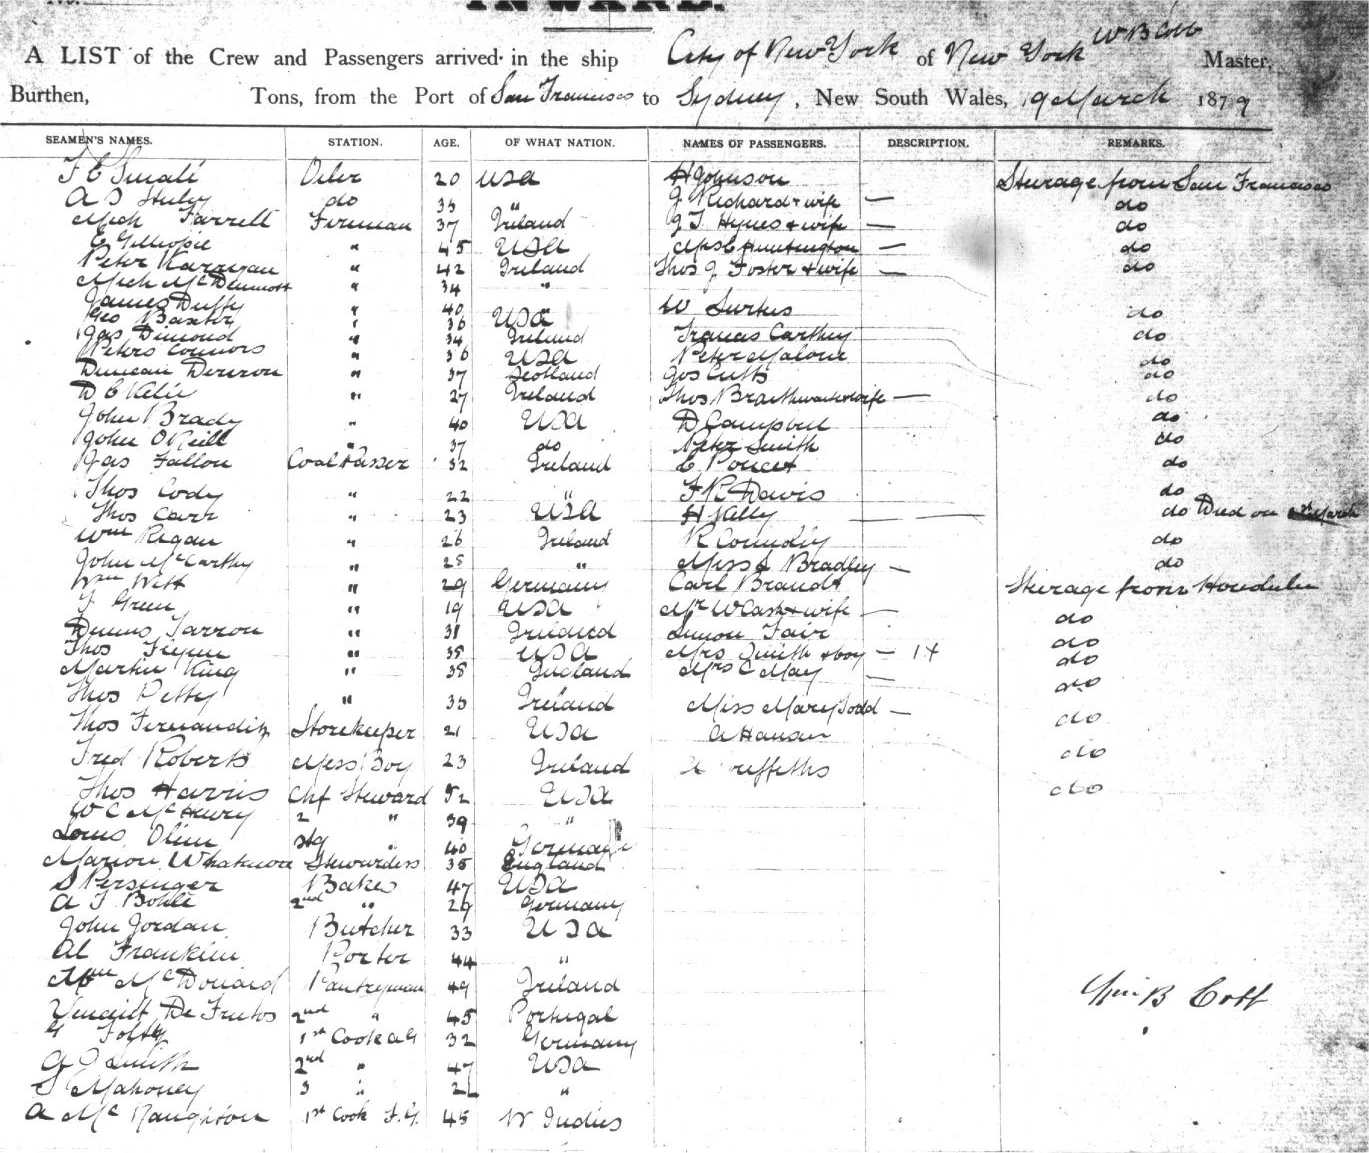 INWARD.
A LIST of the Crew and Passengers arrived in the ship City of New York of New York W B Cobb Master,
Burthen, Tons, from the Port of San Francisco to Sydney, New South Wales, 19 March 1879
SEAMEN'S NAMES. STATION. AGE. OF WHAT NATION. NAMES OF PASSENGERS. DESCRIPTION. REMARKS.
F E Oiler 20 USA H Johnson Steerage from San Francisco
A S do 35 " J Richard & wife — do
Mich Farrell Fireman 37 Ireland J T Hynes & wife — do
C Gillispie " 45 USA Huntington — do
Peter Karrigan " 42 Ireland Thos J Foster & wife — do
Mich McDermott " 34 "
James Duffy " 40 W do
Geo Baxter " 36 USA
Jas Dimond " 34 Ireland Francis Carthey do
Peters Connors " 36 USA Peter Malone do
Duncan " 37 Scotland Jos Cutts do
D C " 27 Ireland Thos & wife — do
John Brady " 40 USA D Campbell do
John O'Neill " 37 do Peter Smith do
Jas Fallon Coal Passer 32 Ireland C do
Thos Cody " 22 " F R Davis do
Thos Carr " 23 USA H Kelly — do Died on March
Wm Regan " 26 Ireland R Connolly do
John McCarthy " 25 " Miss Bradley — do
Wm Witt " 29 Germany Carl Brandt Steerage from Honolulu
J Green " 19 USA Mr W Cash & wife — do
Dennis " 38 Ireland Simon Fair do
Thos Flynn " 35 USA Mrs Smith & boy — 14 do
Martin King " 35 Ireland Mrs C May — do
Thos Petty " 35 Ireland Miss Mary Todd — do
Thos Storekeeper 21 USA A Hansen do
Fred Roberts Mess Boy 23 Ireland do
Thos Harris Chf Steward 52 USA
W C McHenry 2 " 39 "
Louis Stg " 40 Germany
Marion Stewardess 35 England
S Persinger Baker 47 USA
A F Bohle 2nd " 29 Germany
John Jordan Butcher 33 USA
Al Franklin Porter 44 "
Wm McDonard Pantryman 49 Ireland
De Frutos 2nd " 45 Portugal
G 1st Cook 32 Germany
G J Smith 2nd " 47 USA
S Mahoney 3 " "
A McNaughton 1st Cook 45 W Indies
Wm B Cobb